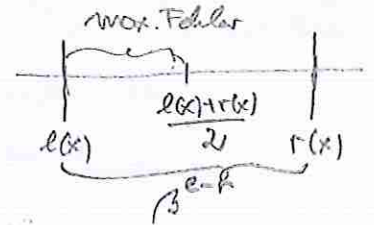 max. Fehler
l(x)+r(x)
2
l(x) r(x)
β^{e-k}